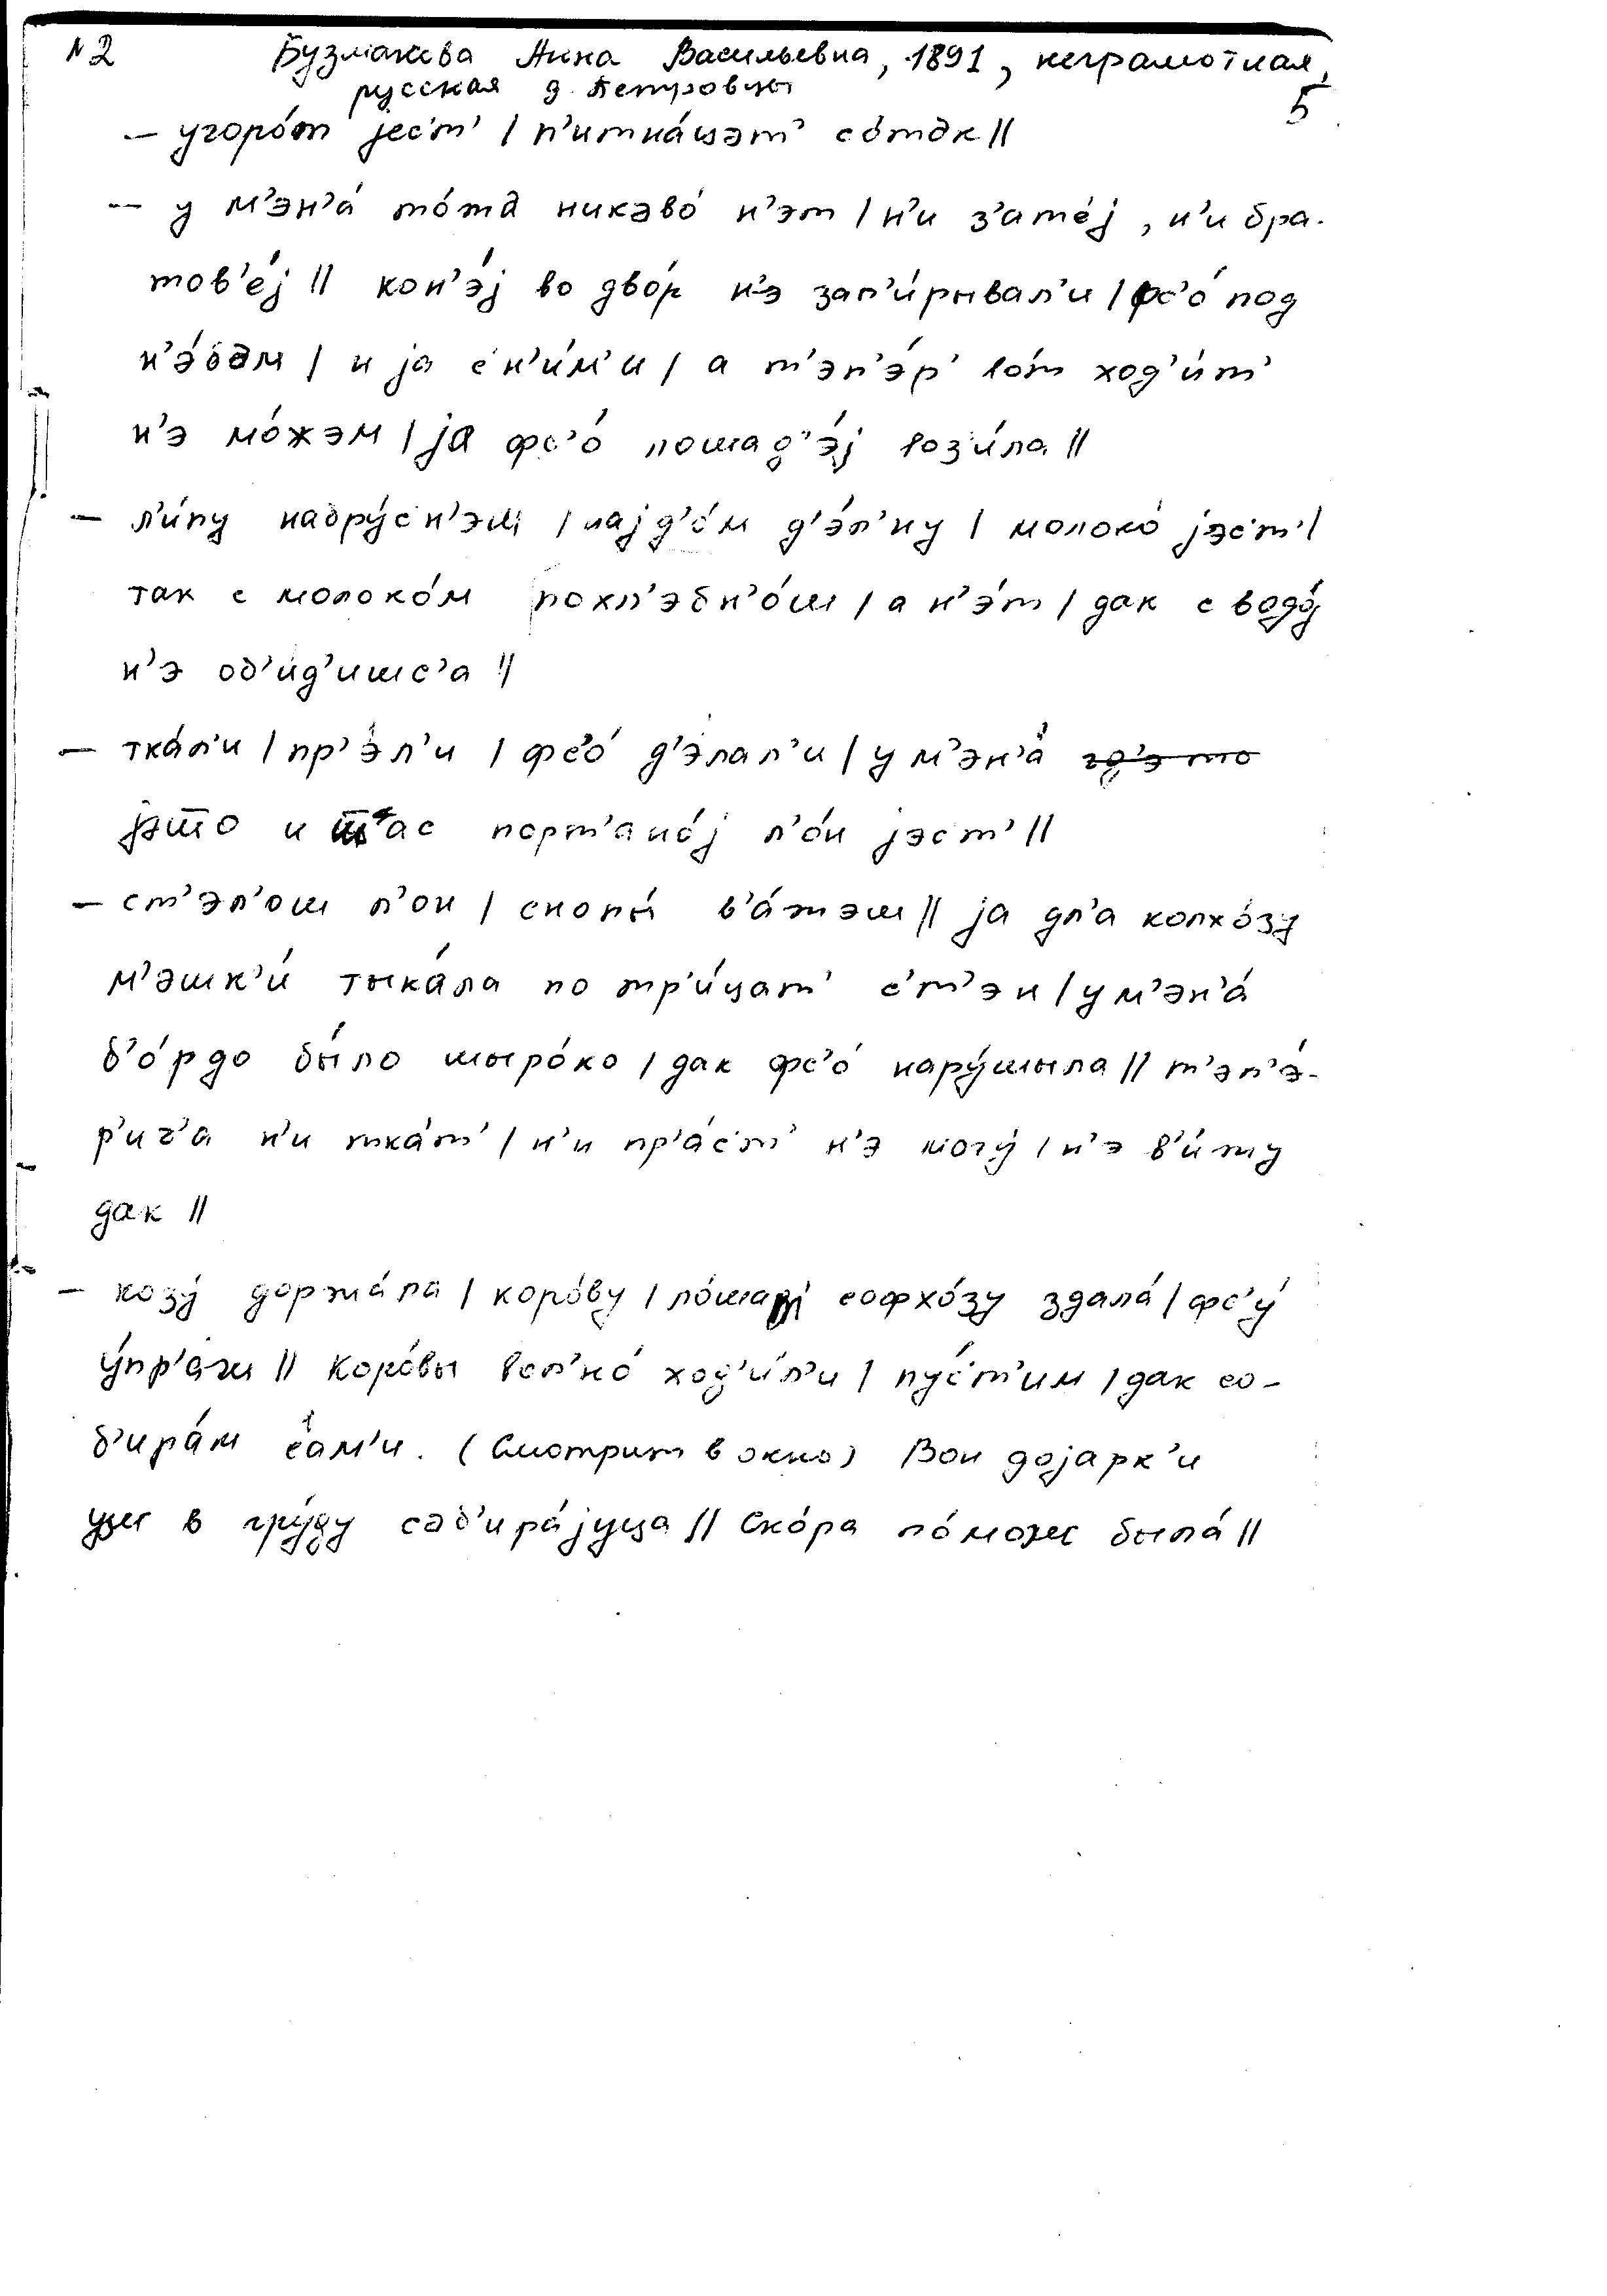 №2 Бузмакова Анна Васильевна, 1891, неграмотная,
русская д. Петровцы
5
— угоро́т јес'т' | п'итна́цэт' со́тək ||
— у м'эн'а́ то́тə никəво́ н'эт | н'и з'ате́ј, н'и бра-
тов'е́ј || кон'э́ј во дво́р н'э зап'и́рывал'и | фс'о́ под
н'э́бəм | и ја с н'и́м'и | а т'эп'э́р' во́т ход'и́т'
н'э мо́жэм | ја фс'о́ лошад'э́ј воз'и́ла ||
— л'и́пу набру́сн'эш | најд'о́м д'э́л'ну | молоко́ јэс'т' |
так с молоко́м похл'эбн'о́ш | а н'э́т | дак с водо́ј
н'э об'и́д'ишс'а ||
— тка́л'и | пр'э́л'и | фс'о́ д'э́лал'и | у м'эн'а́ гд'э то
јэшо и шас порт'ано́ј л'о́н јэст' ||
— ст'эл'ош л'он | снопы́ в'а́жэш || ја дл'а колхо́зу
м'эшк'и́ тыка́ла по тр'и́цат' с'т'эн | у м'эн'а́
б'о́рдо бы́ло шыро́ко | дак фс'о́ нару́шыла || т'эп'э́-
р'ич'а н'и тка́т' | н'и пр'а́с'т' н'э могу́ | н'э в'и́жу
дак ||
— козу́ доржа́ла | коро́ву | ло́шад' софхо́зу здала́ | фс'у́
у́пр'аж || Коро́вы вол'но́ ход'и́л'и | пус'т'им | дак со-
б'ира́м са́м'и. (Смотрит в окно) Вон дојарк'и
уж в гру́ду сəб'ира́јуца || Ско́ра по́мож была́ ||